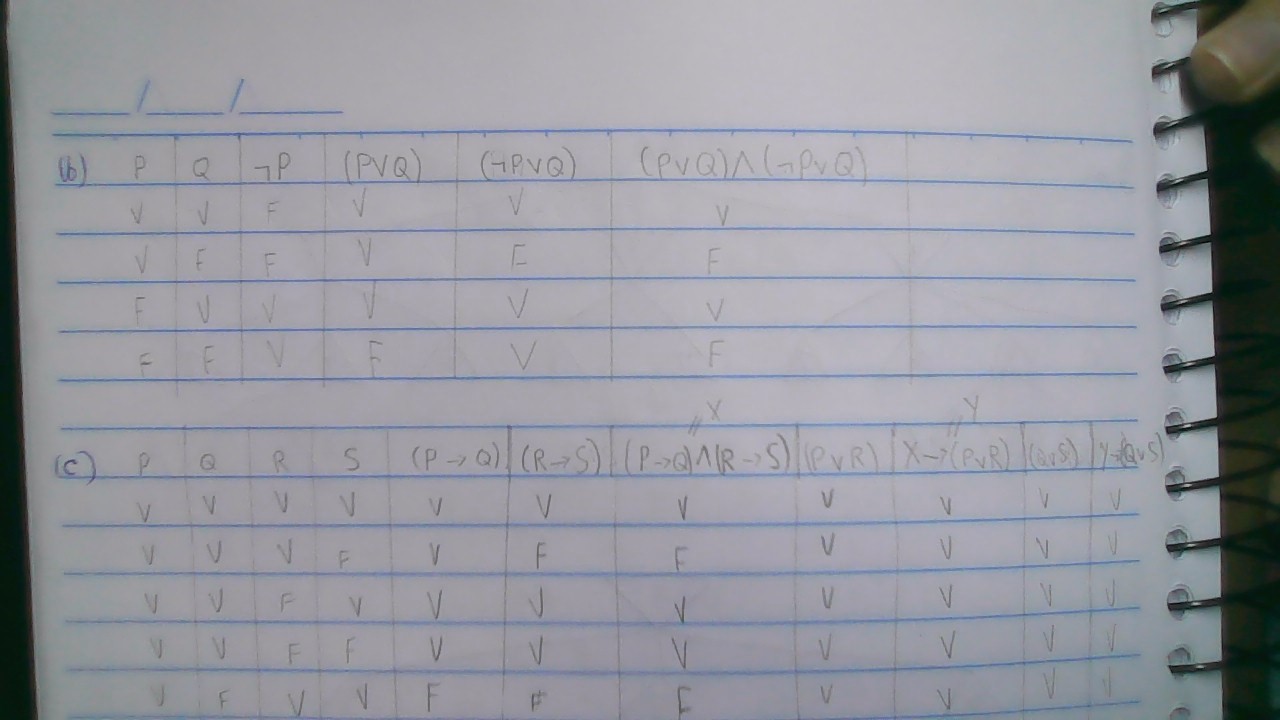 ___/___/___
(b) P Q ¬P (P∨Q) (¬P∨Q) (P∨Q)∧(¬P∨Q)
V V F V V V
V F F V F F
F V V V V V
F F V F V F
X Y
(c) P Q R S (P→Q) (R→S) (P→Q)∧(R→S) (P∨R) X→(P∨R) (Q∨S) Y→(Q∨S)
V V V V V V V V V V V
V V V F V F F V V V V
V V F V V V V V V V V
V V F F V V V V V V V
V F V V F F F V V V V